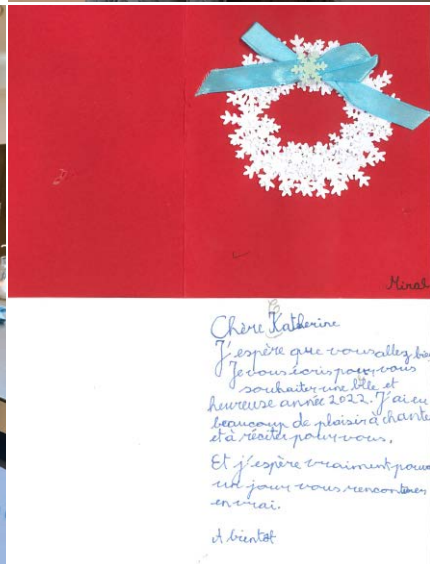 Minal
Chère Katherine
J'espère que vous allez
Je vous écris pour vous
souhaiter une belle et
heureuse année 2022. J'ai eu
beaucoup de plaisir à chante
et à réciter pour vous.
Et j'espère vraiment pouvo
un jour vous rencontrer
en vrai.
A bientot